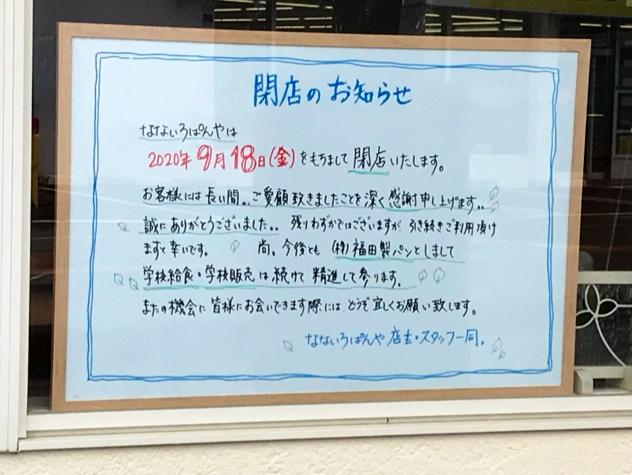 閉店のお知らせ
なないろぱんやは
2020年9月18日(金)をもちまして閉店いたします。
お客様には長い間、ご愛顧致きましたことを深く感謝申し上げます。
誠にありがとうございました。残りわずかではございますが、引き続きご利用頂け
ますと幸いです。尚、今後とも(株)福田製パンとしまして
学校給食・学校販売は続けて精進して参ります。
またの機会に皆様にお会いできます際にはどうぞ宜しくお願い致します。
なないろぱんや店主・スタッフ一同。